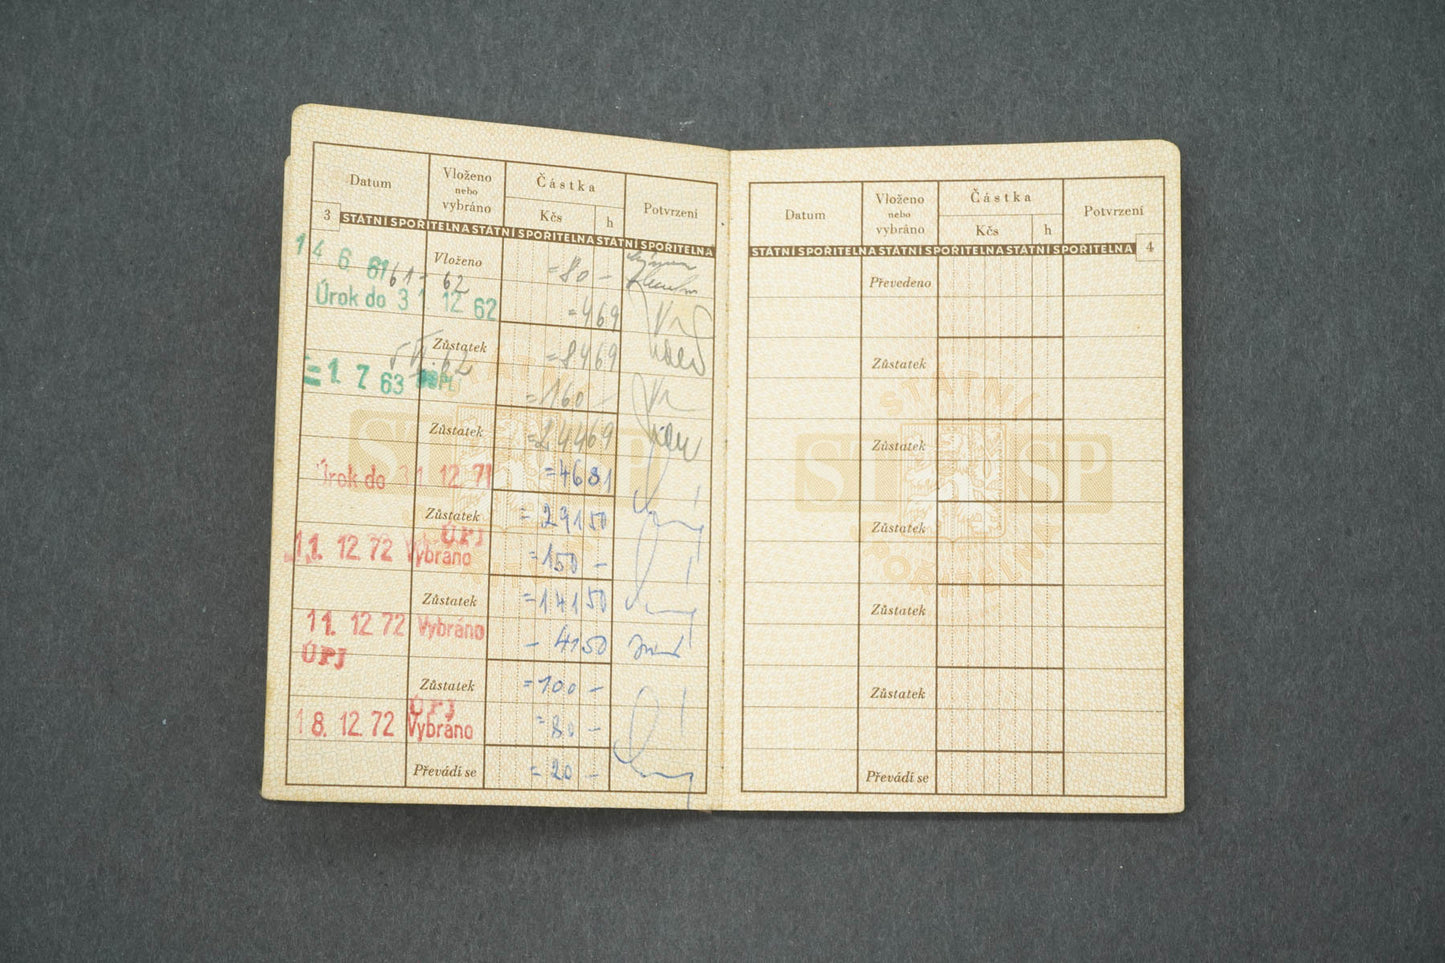 Datum Vloženo nebo vybráno Částka Kčs h Potvrzení
3 STÁTNÍ SPOŘITELNA STÁTNÍ SPOŘITELNA STÁTNÍ SPOŘITELNA
14 6 61 Vloženo =80 -
61 - 62
Úrok do 31 12 62 =469
Zůstatek =8469
=1. 7 63 =160 -
Zůstatek =24469
Úrok do 31. 12. 71 =4681
Zůstatek =29150
ÚPJ
11. 12. 72 Vybráno =150 -
Zůstatek =14150
11. 12. 72 Vybráno - 4150
ÚPJ
Zůstatek =100 -
ÚPJ
18. 12. 72 Vybráno =80 -
Převádí se =20 -
Datum Vloženo nebo vybráno Částka Kčs h Potvrzení
STÁTNÍ SPOŘITELNA STÁTNÍ SPOŘITELNA STÁTNÍ SPOŘITELNA 4
Převedeno
Zůstatek
Zůstatek
Zůstatek
Zůstatek
Zůstatek
Převádí se
STÁTNÍ
ST SP
SPOŘITELNA